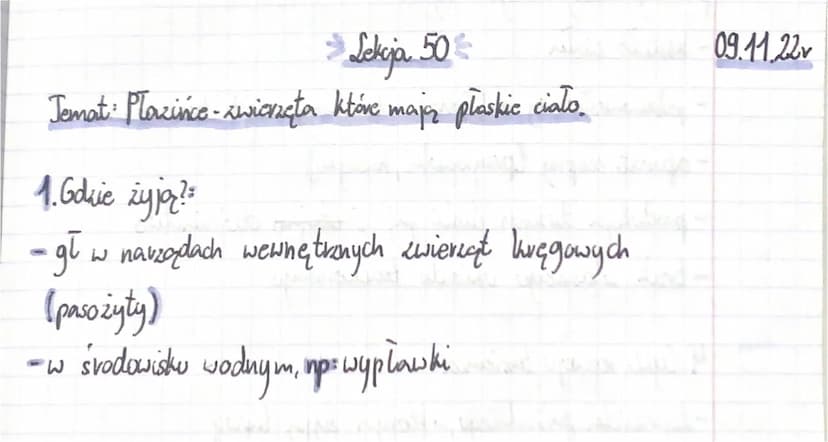 Lekcja 50
09.11.22r
Temat: Płazińce - zwierzęta które mają płaskie ciało.
1. Gdzie żyją?:
- gł w narządach wewnętrznych zwierząt kręgowych
(pasożyty)
- w środowisku wodnym, np: wypławki